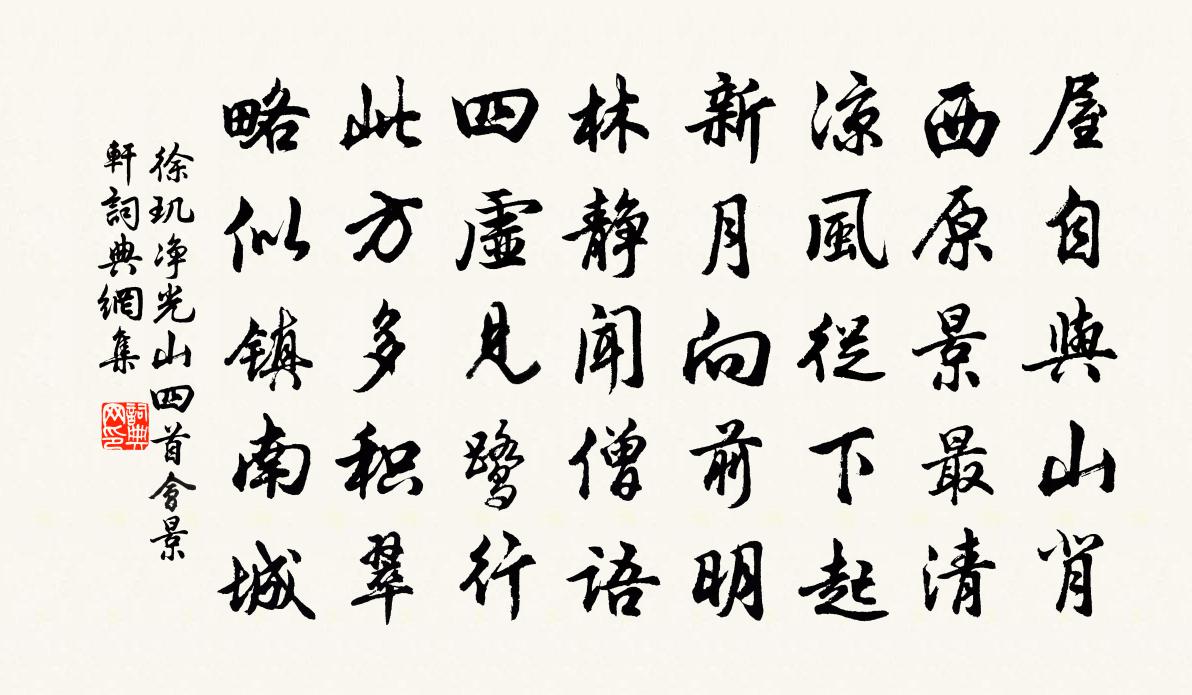 屋自與山背
西原景最清
涼風從下起
新月向前明
林靜聞僧語
四虛見鷺行
此方多积翠
略似鎮南城
徐玑净光山四首會景
軒詞典網集
詞典
网印